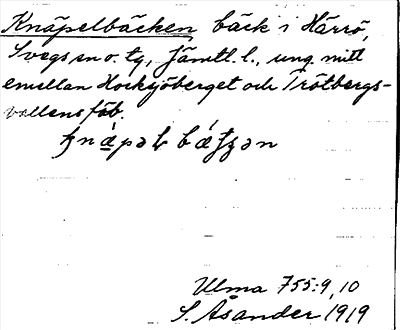 Knäpelbäcken, bäck i Härrö,
Svegs sn o. tg, Jämtl. l., ung. mitt
emellan Hocksjöberget och Trötbergs-
vallens fäb.
Ulma 755:9,10
S. Åsander 1919